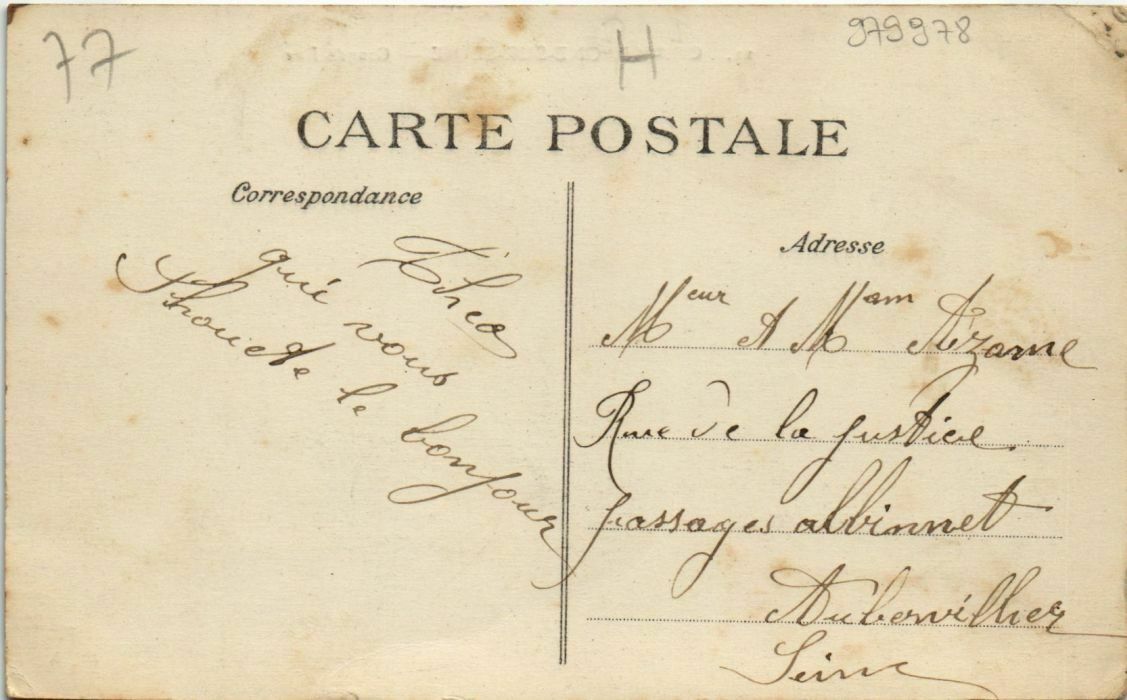 77
H
979978
CARTE POSTALE
Correspondance
Théo
qui vous
Shouete le bonjour
Adresse
Meur A Mam Azame
Rue de la justice
passages albinnet
Aubervillier
Seine